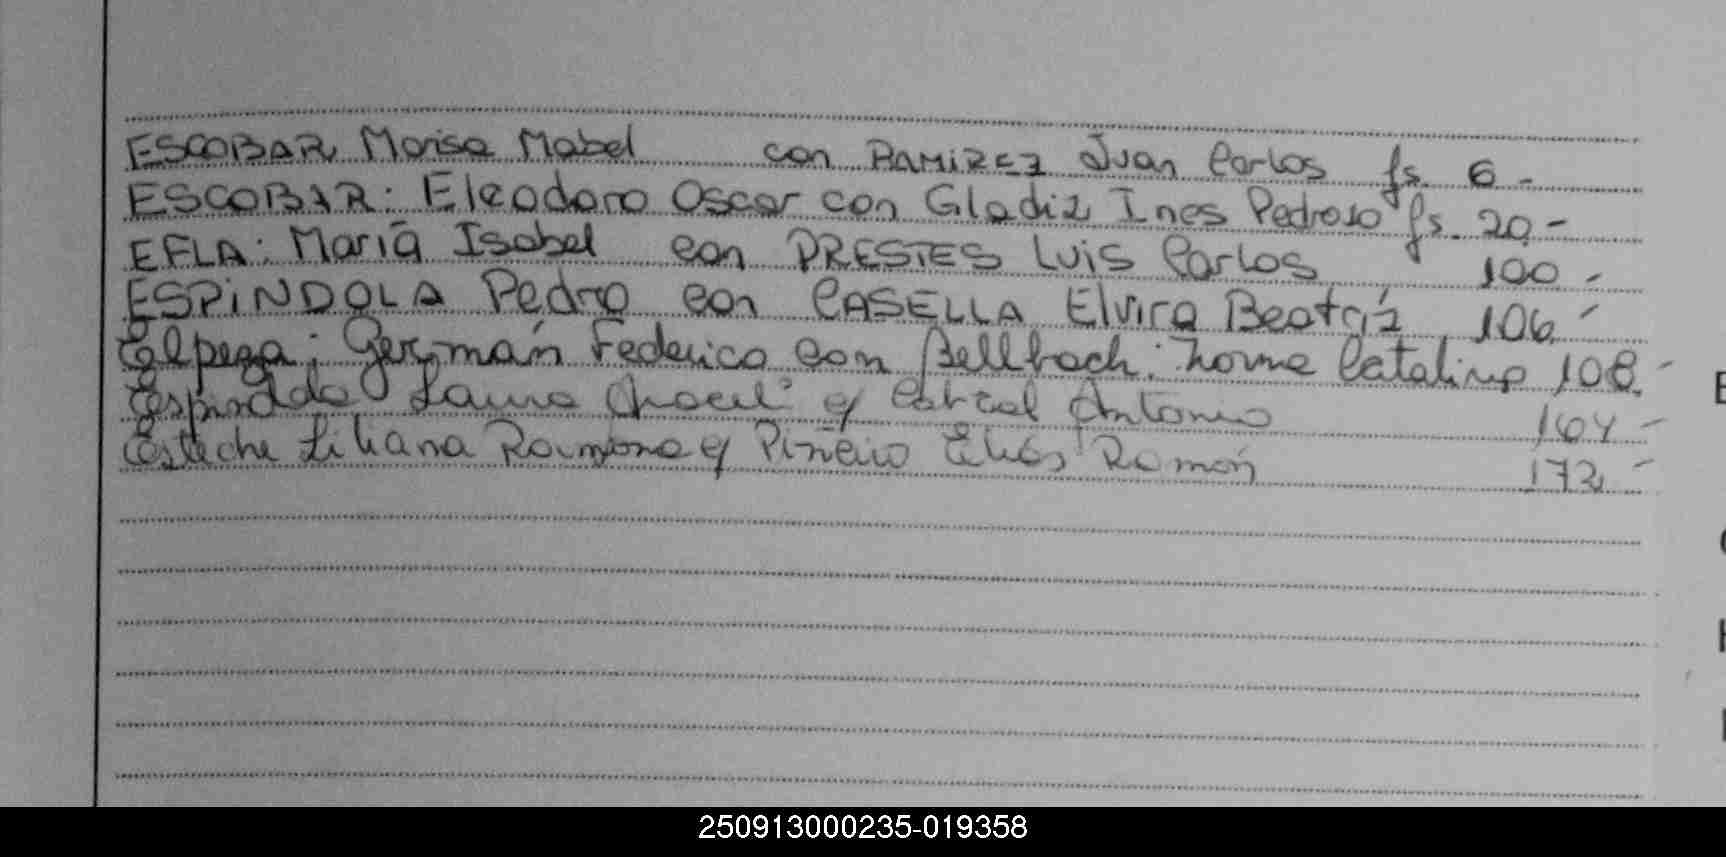 ESCOBAR Marisa Mabel con RAMIREZ Juan Carlos fs. 6 -
ESCOBAR: Eleodoro Oscar con Gladiz Ines Pedroso fs. 20 -
EFLA: María Isabel con PRESTES Luis Carlos 100 -
ESPINDOLA Pedro con CASELLA Elvira Beatríz 106 -
Germán Federico con Catalina 108 -
Espindola Laura c/ Cabral Antonio 164 -
Esteche Liliana Ramona c/ Piñeiro Elías Ramón 172 -
250913000235-019358